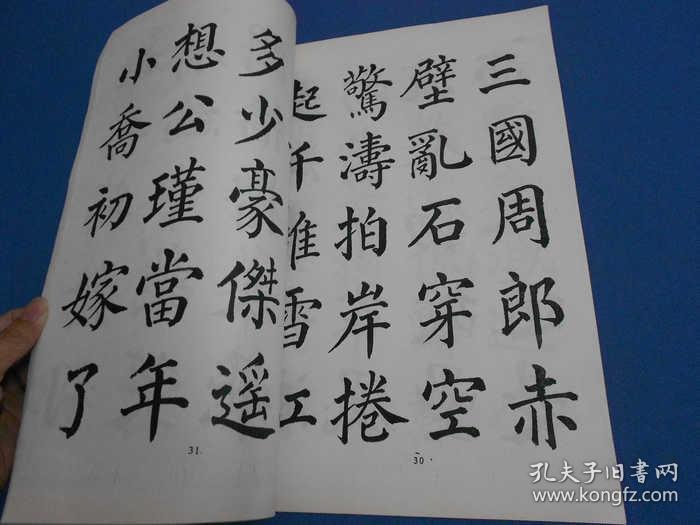 三國周郎赤
壁亂石穿空
驚濤拍岸捲
起千堆雪江
30
多少豪傑遥
想公瑾當年
小喬初嫁了
31
孔夫子旧书网
www.kongfz.com